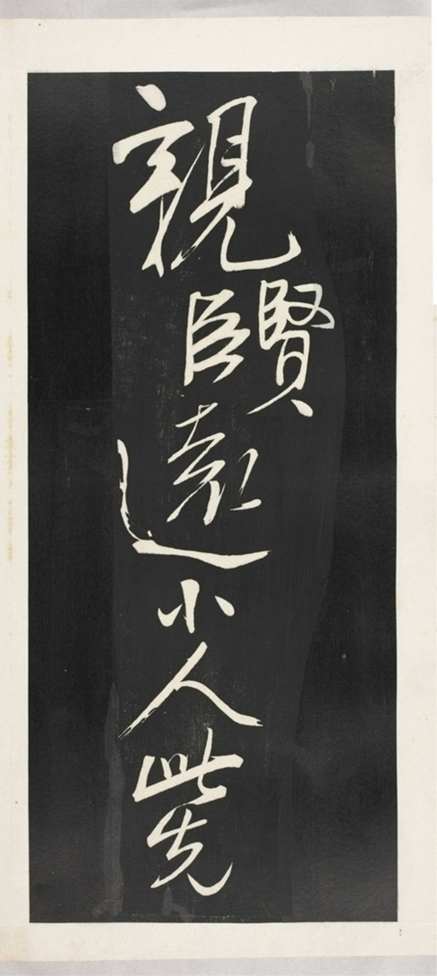 親賢臣遠小人此先